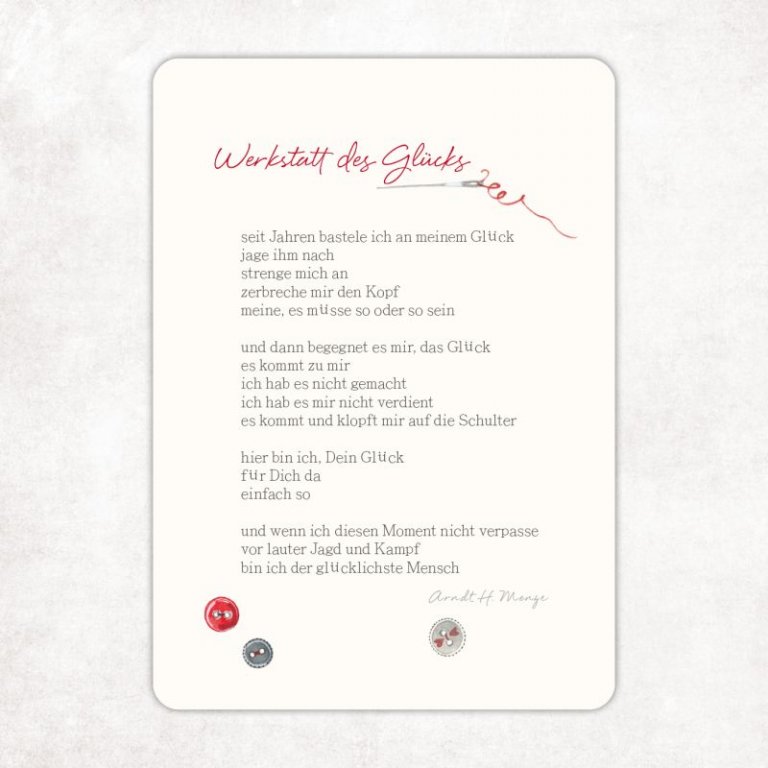 Werkstatt des Glücks
seit Jahren bastele ich an meinem Glück
jage ihm nach
strenge mich an
zerbreche mir den Kopf
meine, es müsse so oder so sein
und dann begegnet es mir, das Glück
es kommt zu mir
ich hab es nicht gemacht
ich hab es mir nicht verdient
es kommt und klopft mir auf die Schulter
hier bin ich, Dein Glück
für Dich da
einfach so
und wenn ich diesen Moment nicht verpasse
vor lauter Jagd und Kampf
bin ich der glücklichste Mensch
Arndt H. Menze